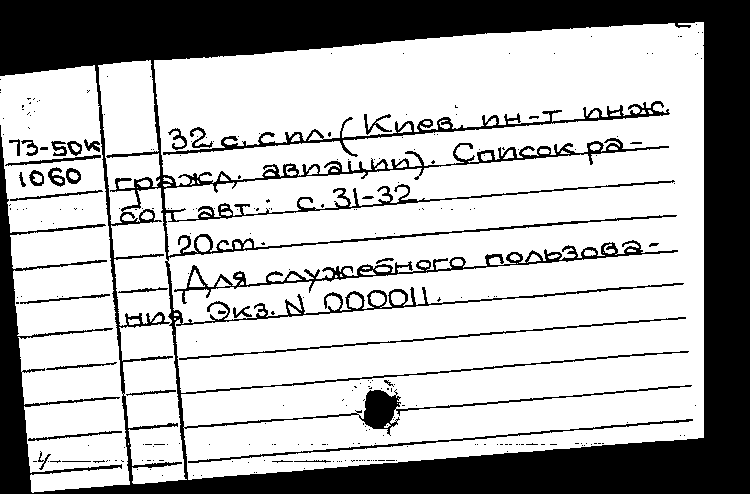 73-50к
1060
32 с. с ил. (Киев. ин-т инж.
гражд. авиации). Список ра-
бот авт.: с. 31-32.
20см.
Для служебного пользова-
ния. Экз. N 000011.